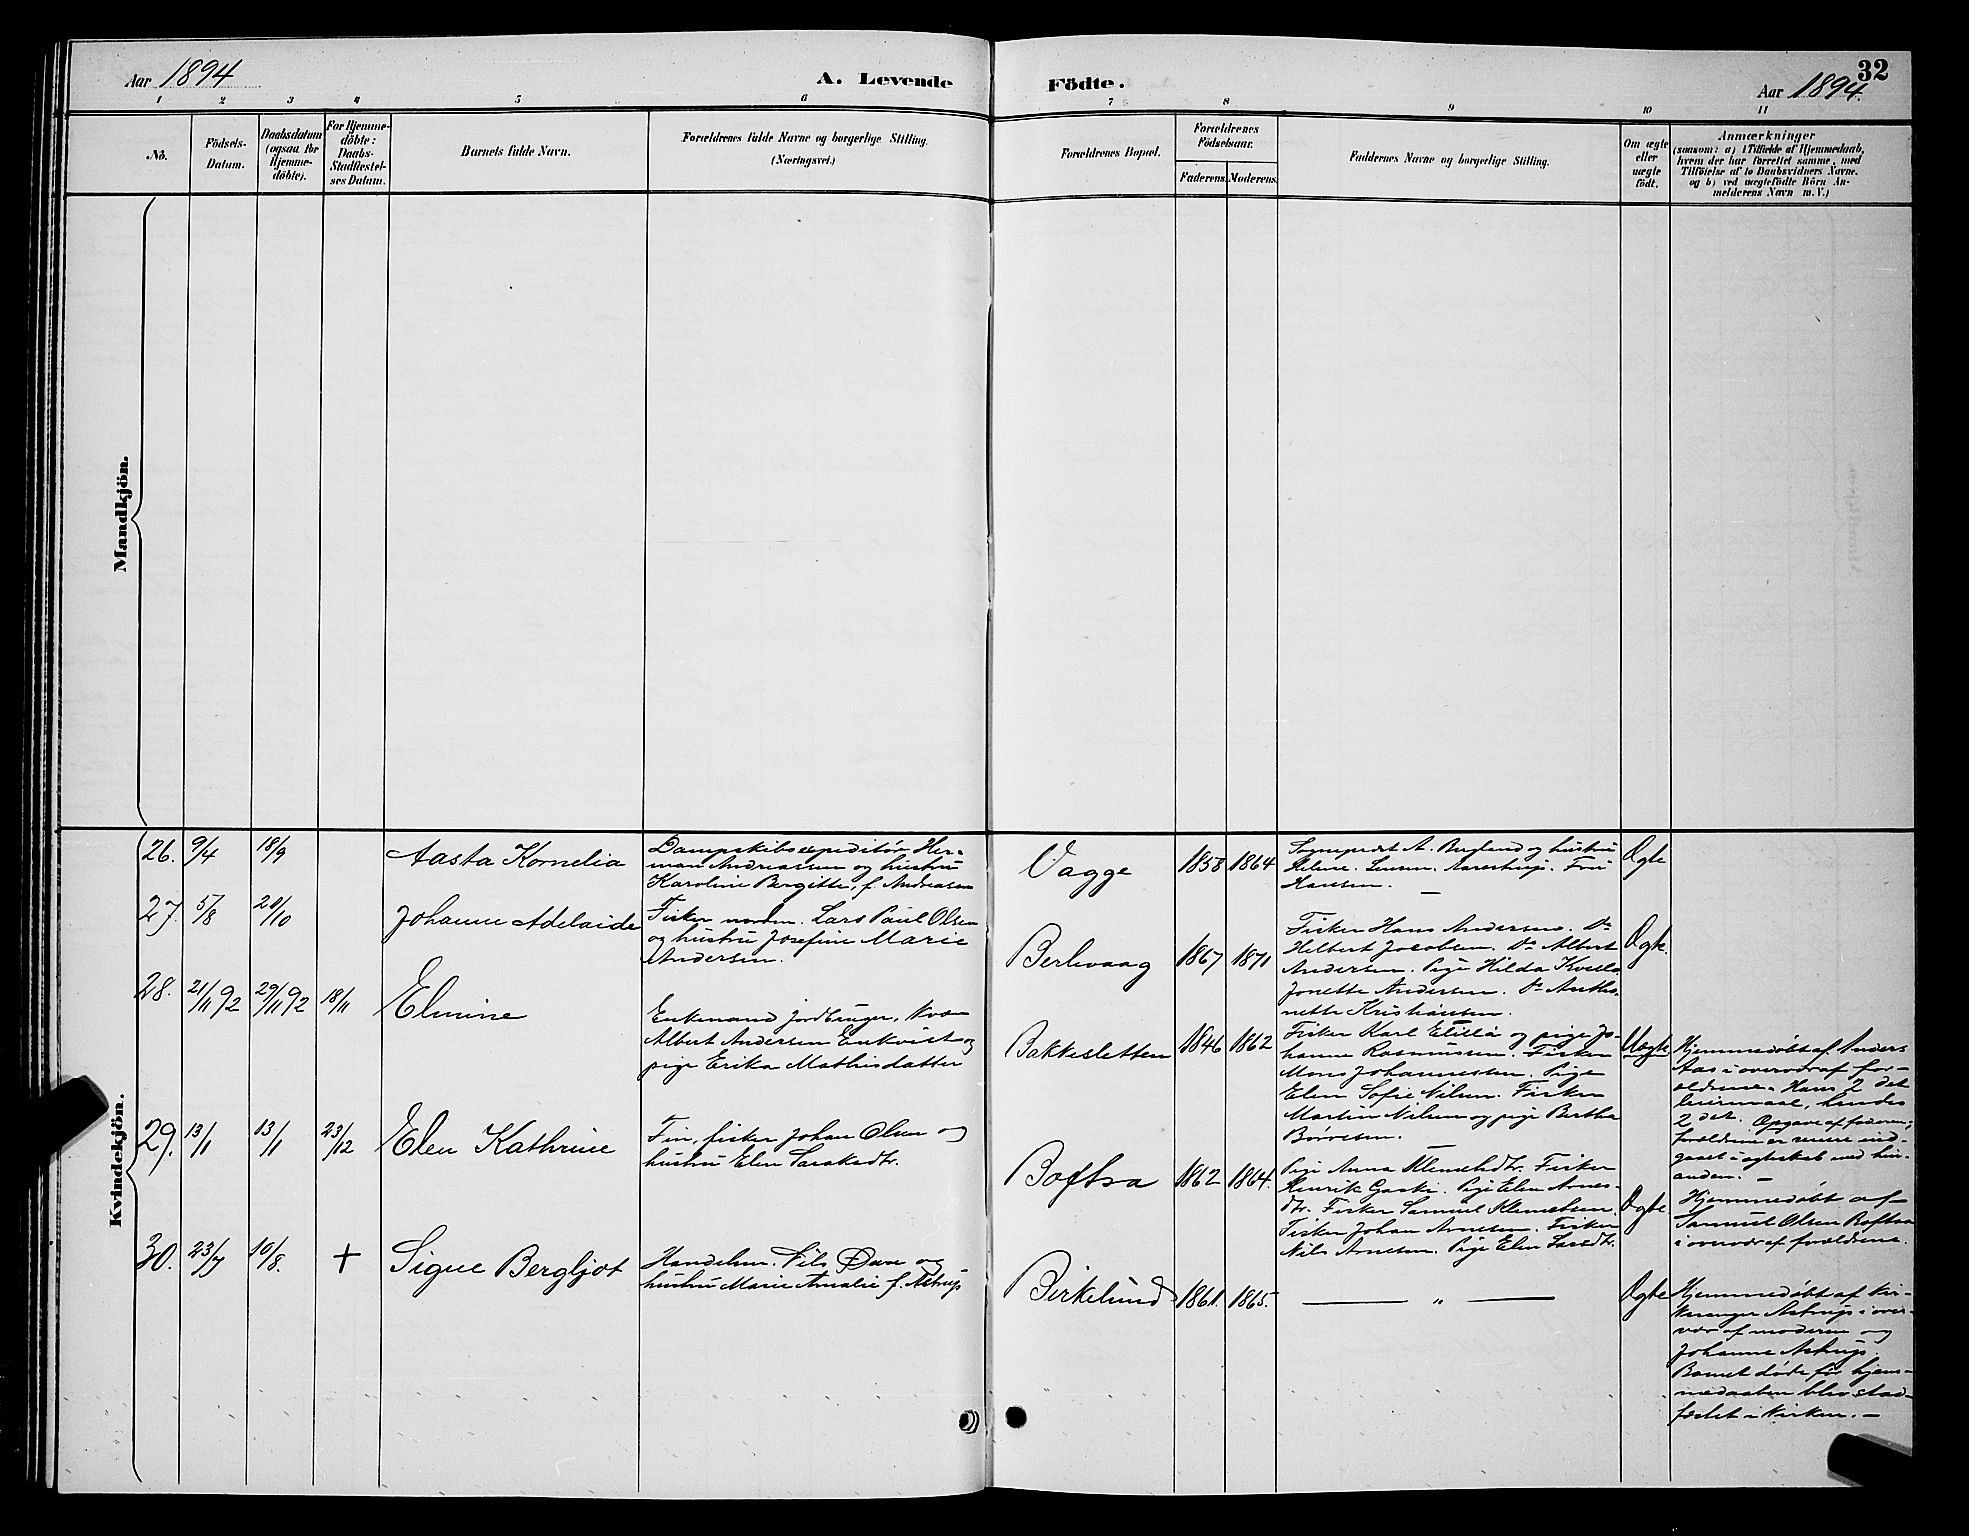 Aar 1894
A. Levende
Födte.
32
Aar 1894.
1 2 3 4 5 6 7 8 9 10 11
No.
Födsels-
Datum.
Daabsdatum
(ogsaa for
Hjemme-
döbte).
For Hjemme-
döbte:
Daabs-
Stadfæstel-
ses Datum.
Barnets fulde Navn.
Forældrenes fulde Navne og borgerlige Stilling.
(Næringsvei.)
Forældrenes Bopæl.
Forældrenes
Födselsaar.
Faderens. Moderens.
Faddernes Navne og borgerlige Stilling.
Om ægte
eller
uægte
födt.
Anmærkninger
(saasom: a) i Tilfælde af Hjemmedaab,
hvem der har forrettet samme, med
Tilföielse af to Daabsvidners Navne.
og b) ved uægtefödte Börn An-
melderens Navn m. V.)
Mandkjön.
Kvindekjön.
26. 9/4 18/9
Aasta Kornelia
Dampskibsexpeditör Her-
man Andreassen og hustru
Karoline Bergitte, f. Andreasen
Vagge
1858 1864
Sogneprest A. og hustru
Helene. Aarestrup. Fru
Hansen. —
Ægte
27. 5/8 20/10
Johanne Adelaide
Fisker Lars Paul Olsen
og hustru Josefine Marie
Andersen.
Berlevaag
1867 1871
Fisker Hans Andersen. Do
Hilbert Jacobsen. Do Albert
Andersen. Pige Hilda
Jonette Andersen. Do Antho-
nette Kristiansen.
Ægte.
28. 21/11 92 29/11 92 18/11
Elmine
Enkemand jordbruger, kvæn
Albert Andersen Enkvist og
pige Erika Mathisdatter
Bakkesletten
1846 1862
Fisker Karl og pige Jo-
hanne Rasmussen. Fisker
Mons Johannessen. Pige
Elen Sofie Nilsen. Fisker
Martin Nilsen og pige Bertha
Börresen. —
Uægte
Hjemmedöbt af Anders
Aas i overvær af for-
ældrene. Hans 2 det
leiermaal, hendes
2 det. Opgave af faderen;
forældrene er senere ind-
gaaet i ægteskab med hin-
anden. —
29. 13/1 13/1 23/12
Elen Kathrine
Fin, fisker Johan Olsen og
hustru Elen Larsdtr.
Boftsa
1862 1864.
Pige Anna Klemetsdtr. Fisker
Henrik Gaski. Pige Elen Arnes-
dtr. Fisker Samuel Klemetsen.
Fisker Johan Arnesen. Fisker
Nils Arnesen. Pige Elen Larsdtr.
Ægte.
Hjemmedöbt af
Samuel Olsen Boftsa
i overvær af forældrene.
30. 23/7 10/8. +
Signe Bergljot
Handelsm. Nils Daae og
hustru Marie Amalie f. Astrup
Birkelund
1861. 1865.
— „ —
Ægte
Hjemmedöbt af Kir-
kesanger Astrup i over-
vær af moderen og
Johanne Astrup.
Barnet döde för hjem-
medaaben blev stad-
fæstet i Kirken. —